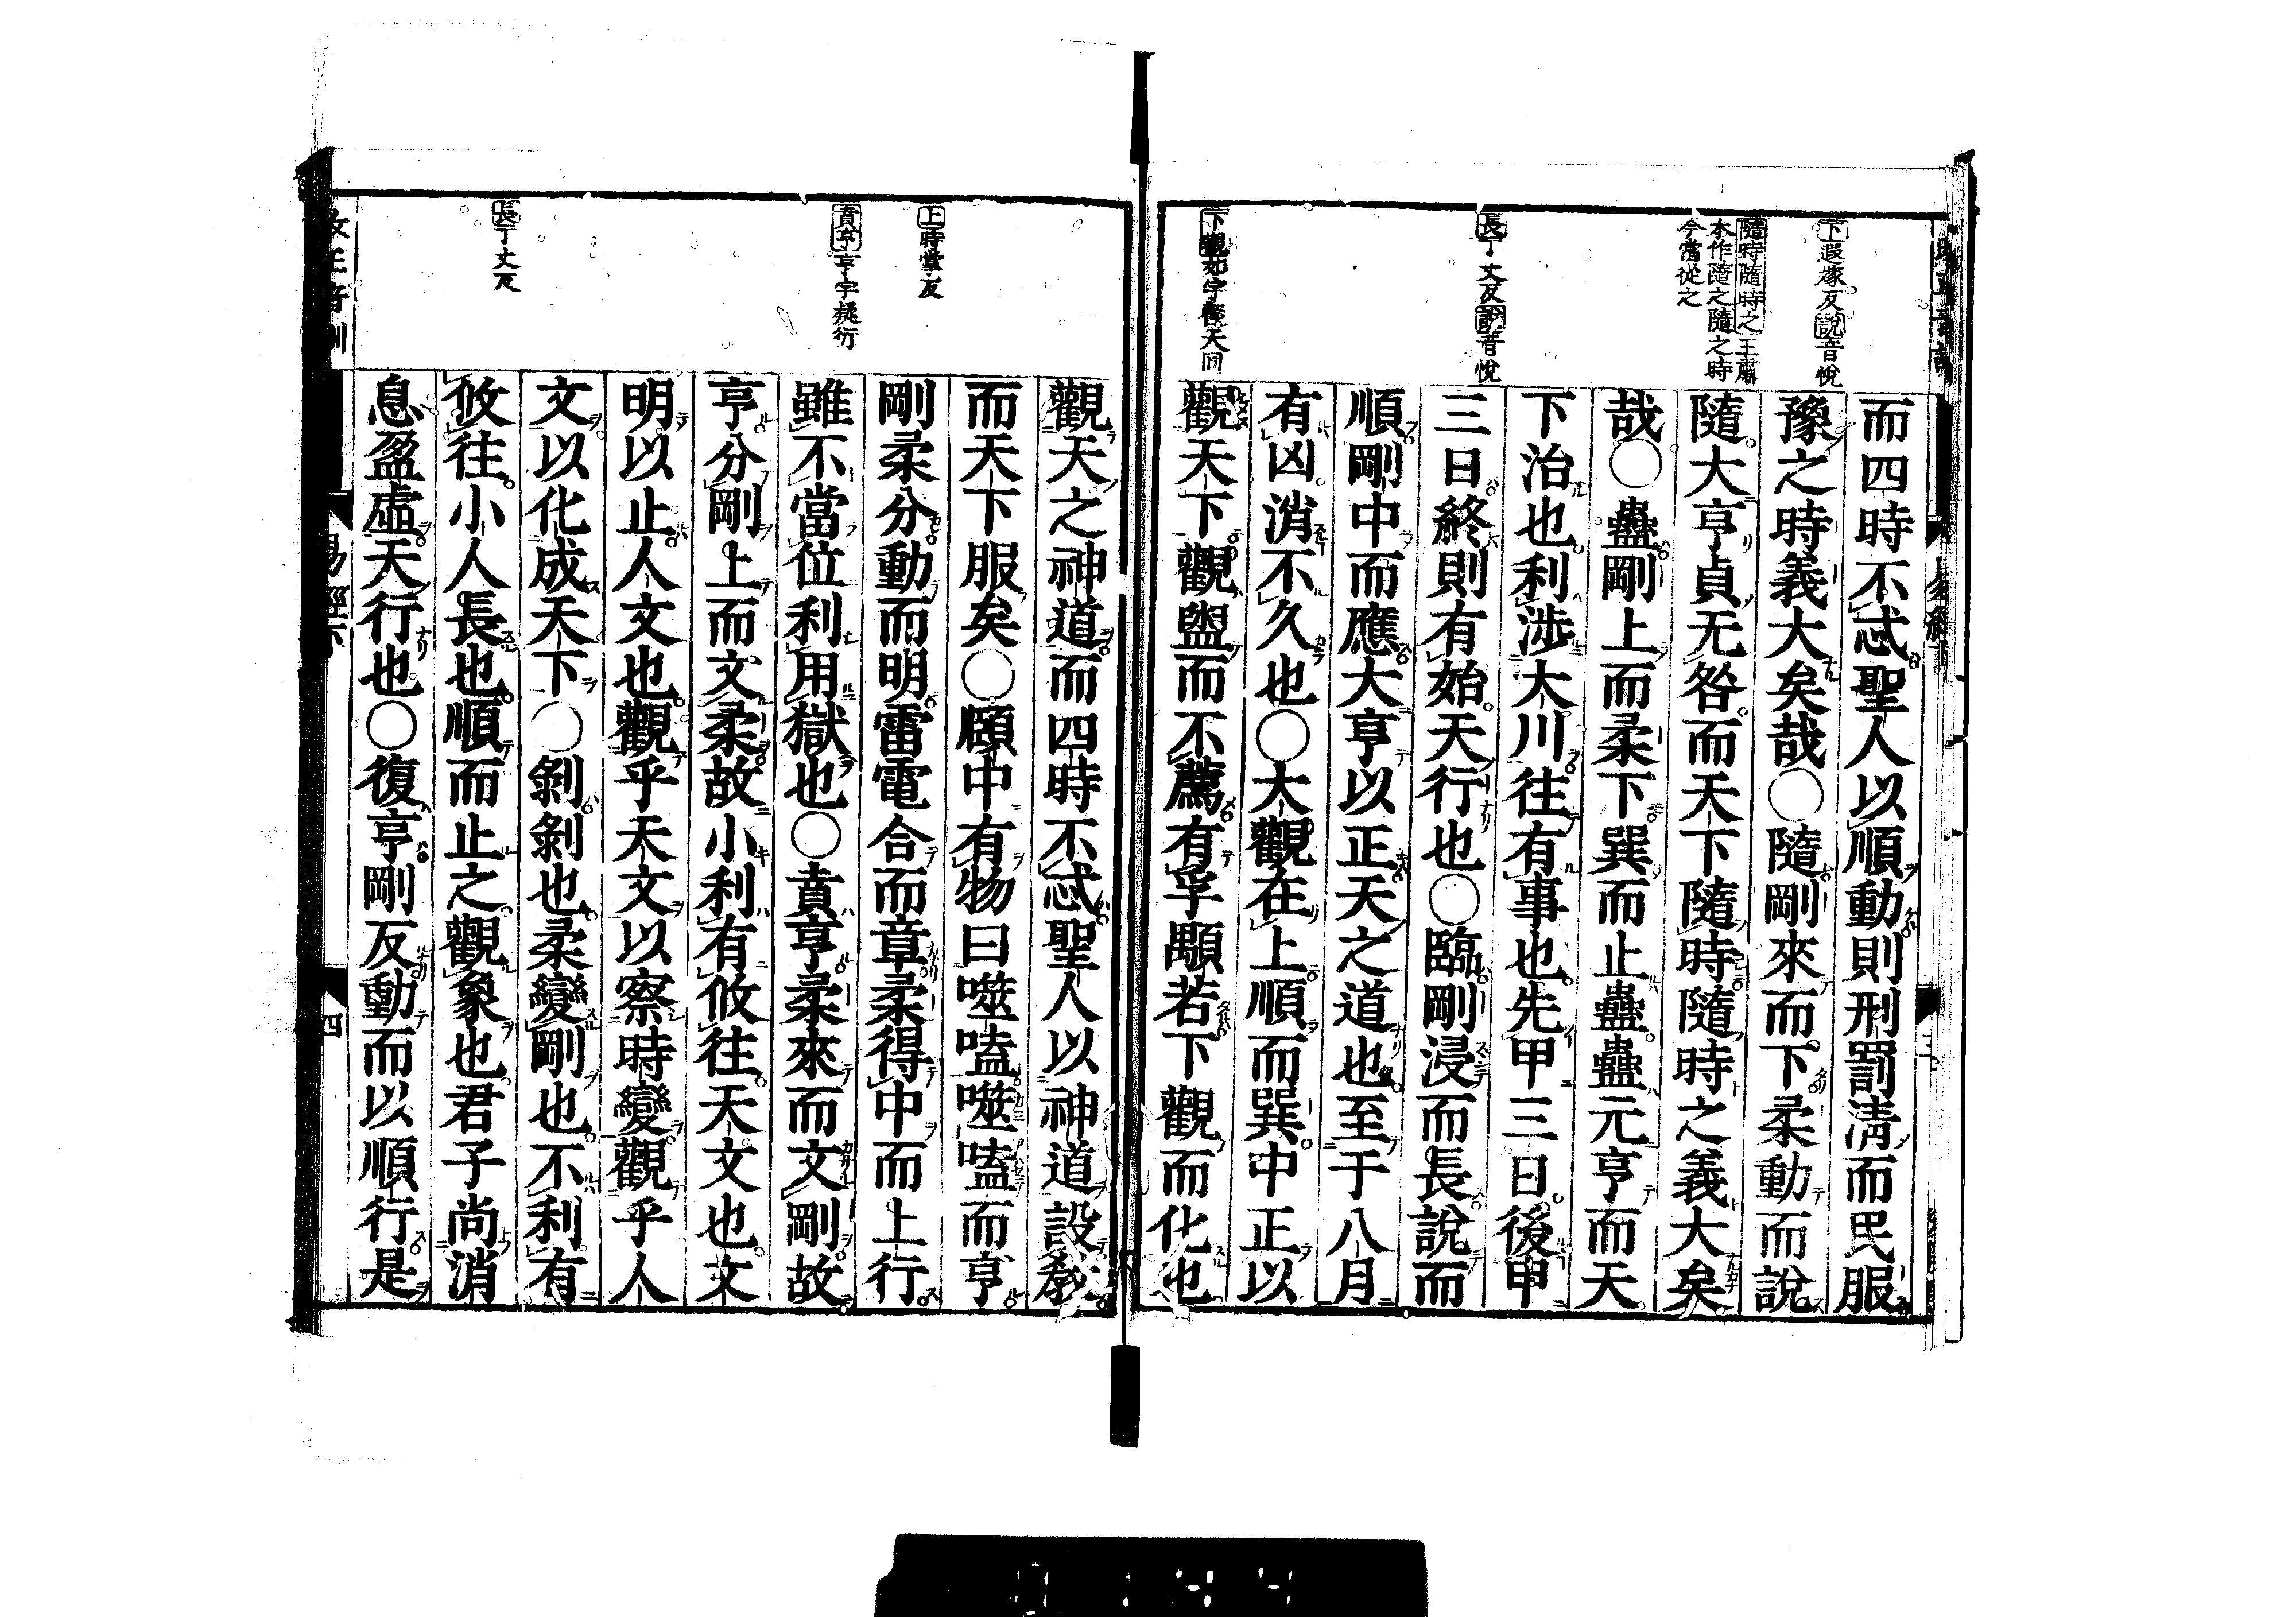 下遐嫁反說音悅
隨時隨時之王肅
本作隨之隨之時
今當從之
長丁丈反說音悅
下觀如字觀天同
而四時不忒聖人以順動則刑罰淸而民服
豫之時義大矣哉〇隨剛來而下柔動而說
隨大亨貞无咎而天下隨時隨時之義大矣
哉〇蠱剛上而柔下巽而止蠱蠱元亨而天
下治也利涉大川往有事也先甲三日後甲
三日終則有始天行也〇臨剛浸而長說而
順剛中而應大亨以正天之道也至于八月
有凶消不久也〇大觀在上順而巽中正以
觀天下觀盥而不薦有孚顒若下觀而化也
上時掌反
賁亨亨字疑衍
長丁丈反
觀天之神道而四時不忒聖人以神道設敎
而天下服矣〇頤中有物曰噬嗑噬嗑而亨
剛柔分動而明雷電合而章柔得中而上行
雖不當位利用獄也〇賁亨柔來而文剛故
亨分剛上而文柔故小利有攸往天文也文
明以止人文也觀乎天文以察時變觀乎人
文以化成天下〇剝剝也柔變剛也不利有
攸往小人長也順而止之觀象也君子尚消
息盈虛天行也〇復亨剛反動而以順行是
易經
四